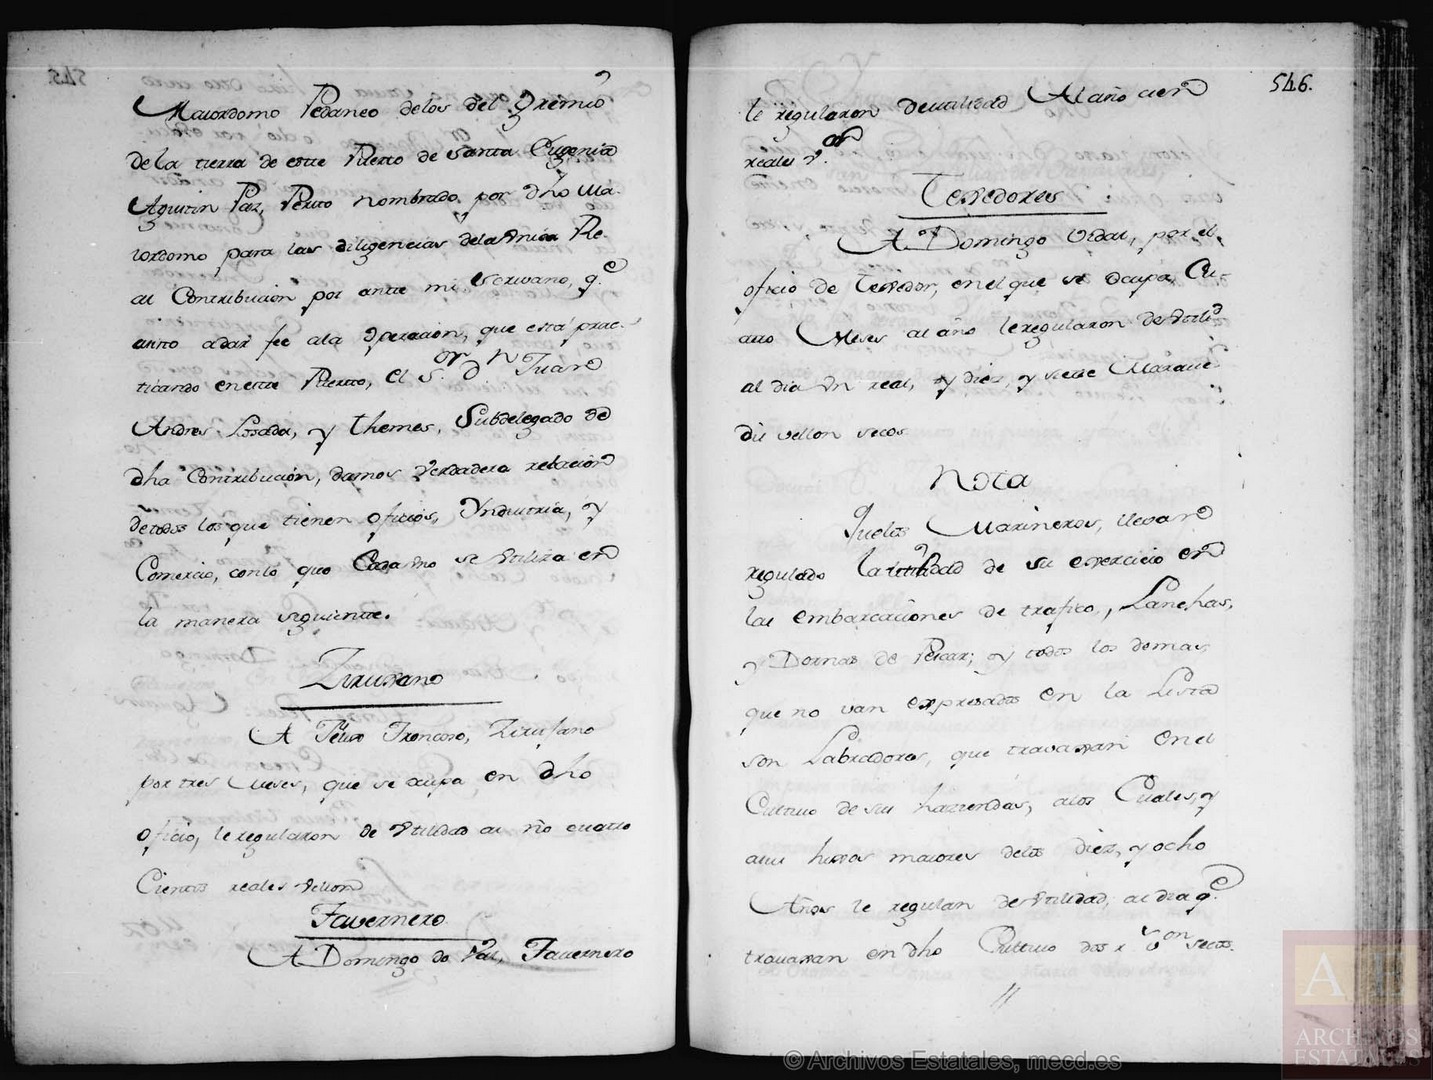 Maiordomo Pedaneo delos del Gremio
dela tierra de este Puerto de Santa Eugenia
Agustin Paz, Perito nombrado por dho Ma-
iordomo para las diligencias dela Unica Re-
al Contribucion por ante mi Scrivano, q.e
asisto a dar fee ala Operacion, que está prac-
ticando eneste Puerto, el S.or D.n Juan
Andres Losada, y Themes, Subdelegado de
dha Contribución, damos verdadera relacion
detodos los que tienen oficios, Yndustria, y
Comercio, conlo que Cada Uno se Utiliza en
la manera siguiente.
Zirusano
A Troncoso, Zirusano
por tres Meses, que se ocupa en dho
Oficio, le regularon de Utilidad al año cuatro
Cientos reales Vellon
Tavernero
A Domingo de Paz, Tavernero
546.
le regularon de utilidad Al año cien
reales v.on
Texedores
A Domingo Vidal, por el
oficio de Texedor, en el que se ocupa, Cu-
atro Meses al año le regularon de Utilid
al dia Un real, y diez, y siete Marave-
dis vellon secos
Nota
Quelos Marineros, llevan
regulado la utilidad de su exercicio en
las embarcaciones de trafico, Lanchas,
y Dornas de Pescar; y todos los demas
que no van expresados en la Lista
son Labradores, que travaxan en el
Cultivo de sus haziendas, alos Cuales, y
asus hijos maiores delos diez, y ocho
Años le regulan de Utilidad, al dia q.e
travaxan en dho Cultivo dos r.s v.on secos.
© Archivos Estatales, mecd.es
AE
ARCHIVOS
ESTATALES